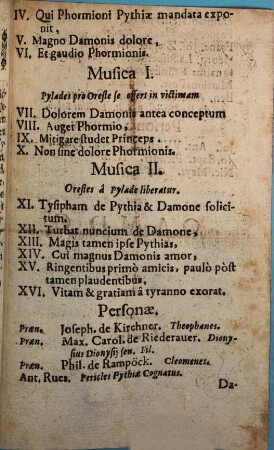 IV. Qui Phormioni Pythiæ mandata expo-
nit,
V. Magno Damonis dolore,
VI. Et gaudio Phormionis.
Musica I.
Pylades pro Oreste se offert in victimam
VII. Dolorem Damonis antea conceptum
VIII. Auget Phormio,
IX. Mitigare studet Princeps
X. Non sine dolore Phormionis.
Musica II.
Orestes á Pylade liberatur.
XI. Tysipham de Pythia & Damone solici-
tum,
XII. Turbat nuncium de Damone,
XIII. Magis tamen ipse Pythias,
XIV. Cui magnus Damonis amor,
XV. Ringentibus primò amicis, paulò pòst
tamen plaudentibus,
XVI. Vitam & gratiam â tyranno exorat.
Personæ.
Præn. Joseph. de Kirchner. Theophanes.
Præn. Max. Carol. de Riederauer. Diony-
sius Dionysij sen. Fil.
Præn. Phil. de Rampöck. Cleomenes.
Ant. Rues. Pericles Pythiæ Cognatus.
Da-